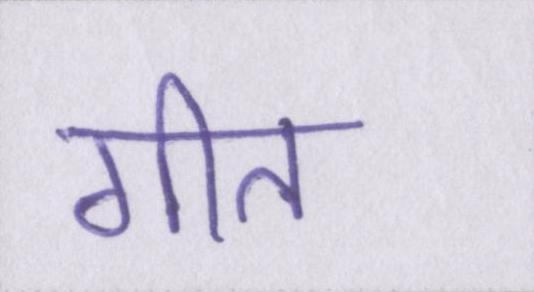 गीत